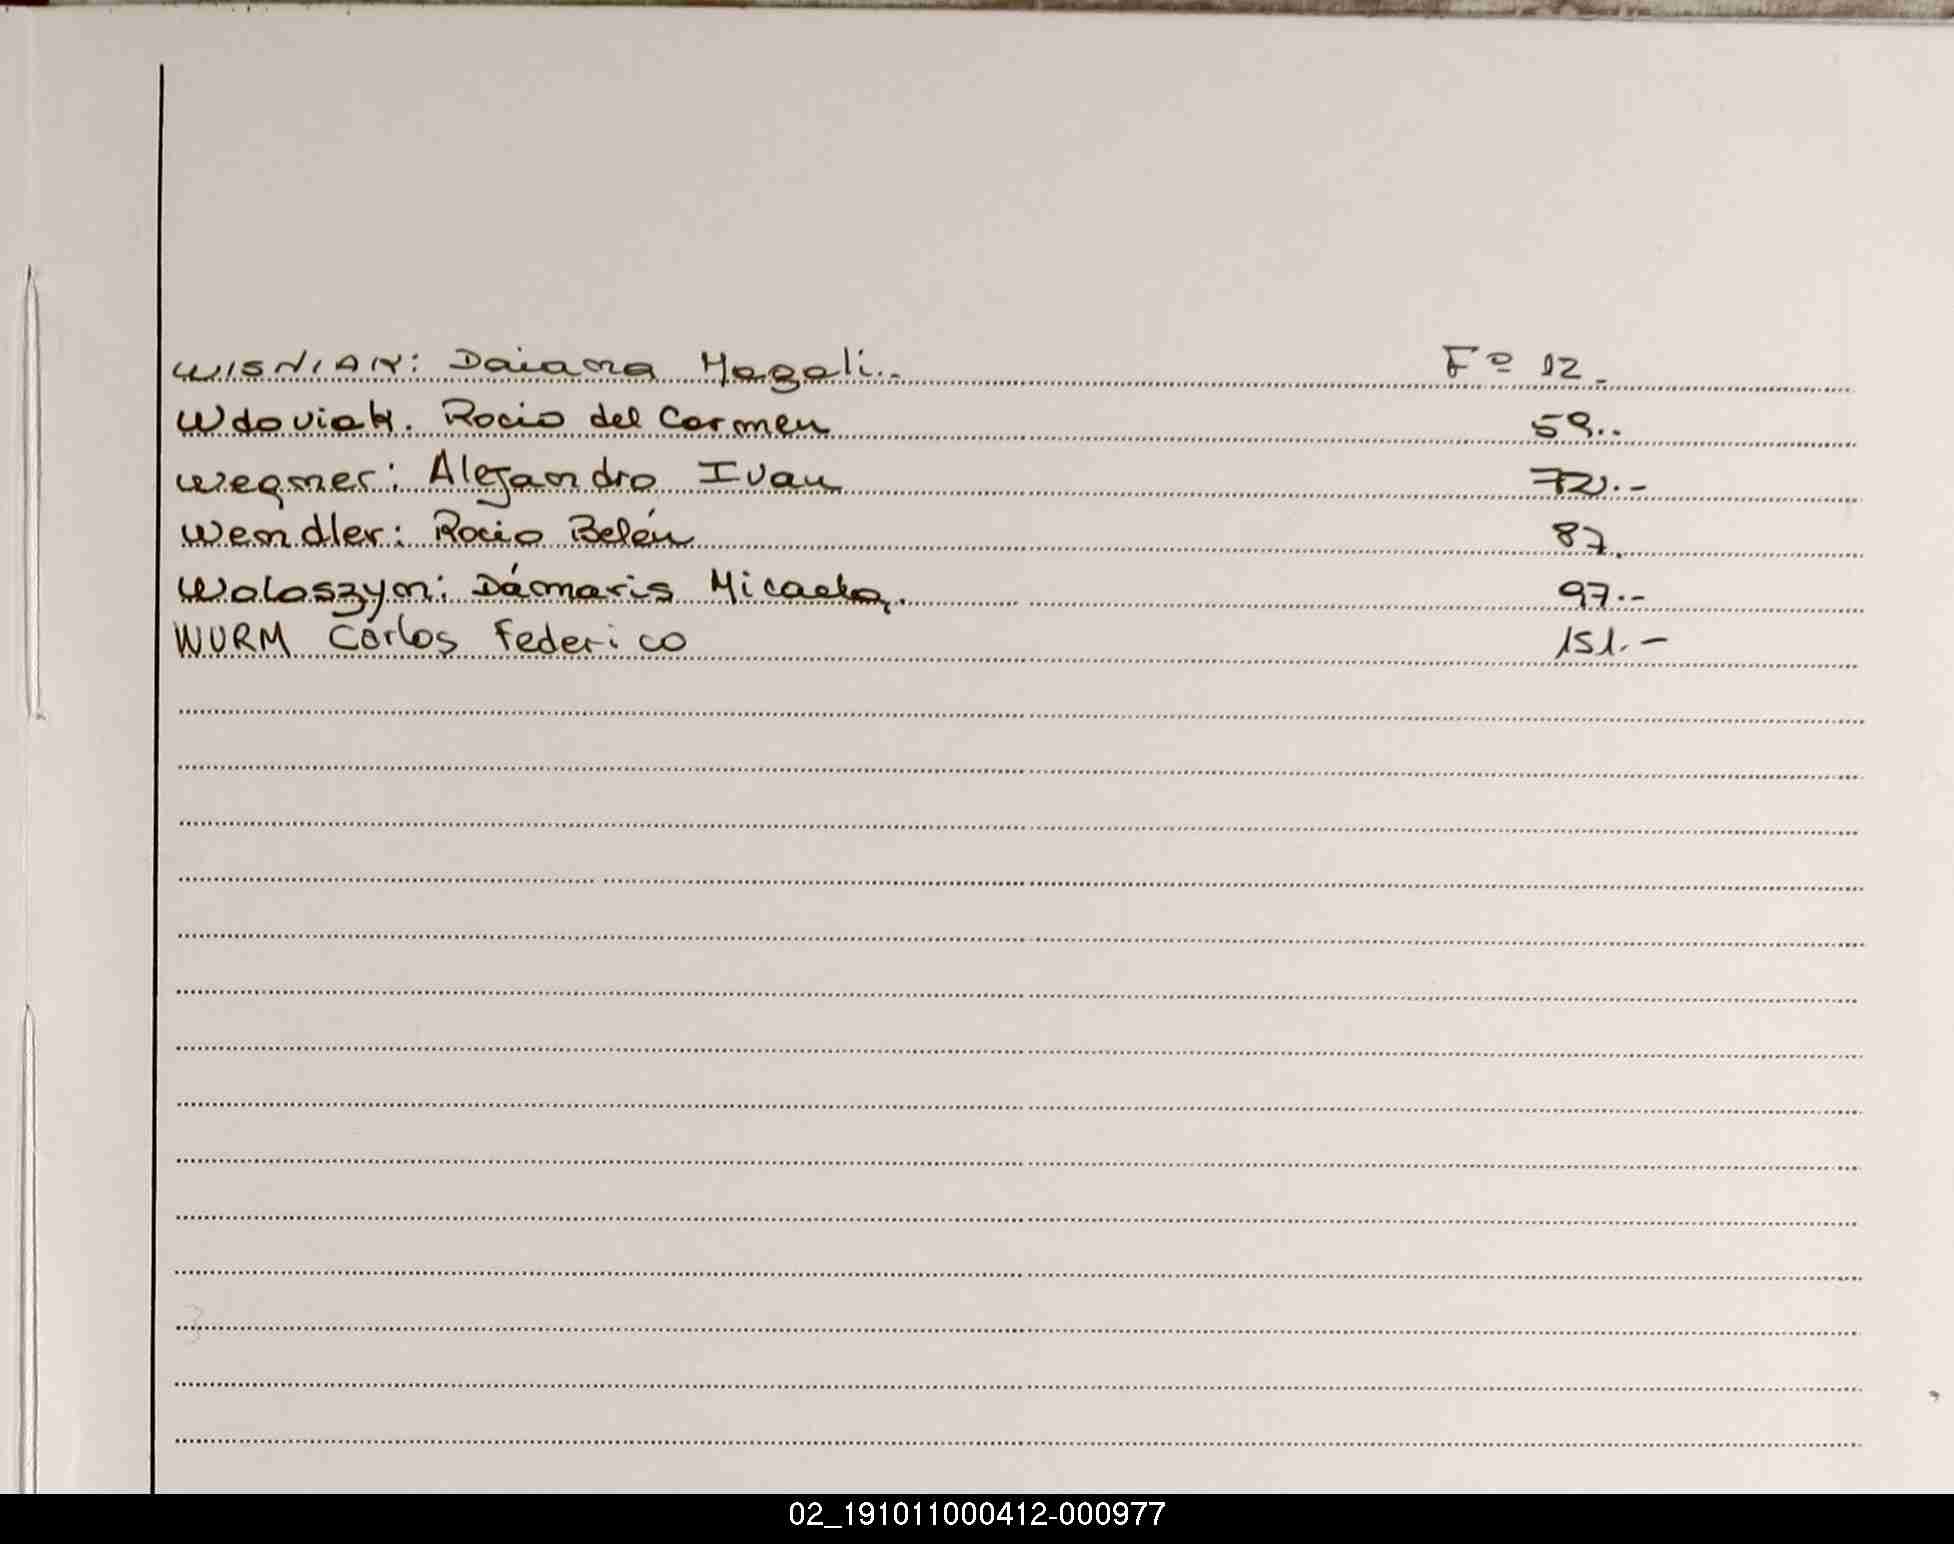 WISNIAK: Daiana Magali.. Fº 12.
Wdoviak. Rocio del Carmen 59..
Wegner: Alejandro Ivan 72.-
Wendler: Rocio Belén 87.
Woloszyn: Dámaris Micaela. 97.--
WURM Carlos Federico 151.-
02_191011000412-000977